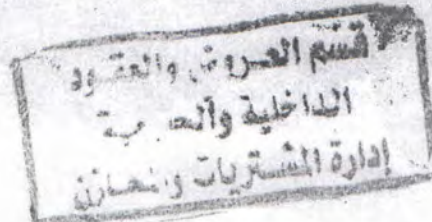 قسم العروض والعقود
الداخلية
إدارة المشتريات والمخازن